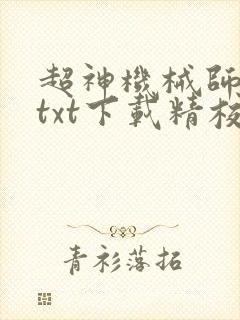 超神機械師
txt下載精校
青衫落拓